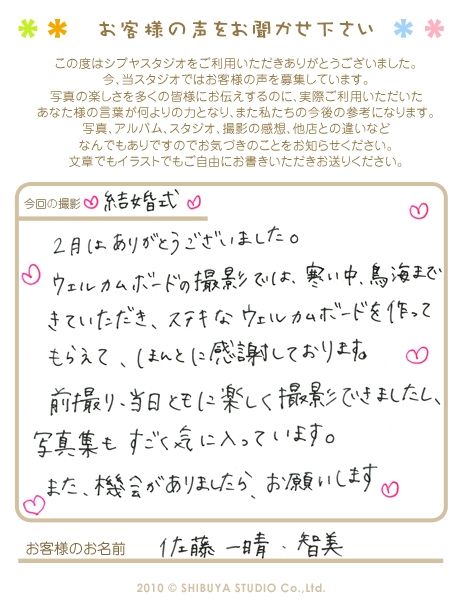 お客様の声をお聞かせ下さい
この度はシブヤスタジオをご利用いただきありがとうございました。
今、当スタジオではお客様の声を募集しています。
写真の楽しさを多くの皆様にお伝えするのに、実際ご利用いただいた
あなた様の言葉が何よりの力となり、また私たちの今後の参考になります。
写真、アルバム、スタジオ、撮影の感想、他店との違いなど
なんでもありですのでお気づきのことをお知らせください。
文章でもイラストでもご自由にお書きいただきお送りください。
今回の撮影 結婚式
2月はありがとうございました。
ウェルカムボードの撮影では、寒い中、鳥海まで
きていただき、ステキなウェルカムボードを作って
もらえて、ほんとに感謝しております。
前撮り、当日ともに楽しく撮影できましたし、
写真集もすごく気に入っています。
また、機会がありましたら、お願いします
お客様のお名前 佐藤 一晴・智美
2010 © SHIBUYA STUDIO Co.,Ltd.